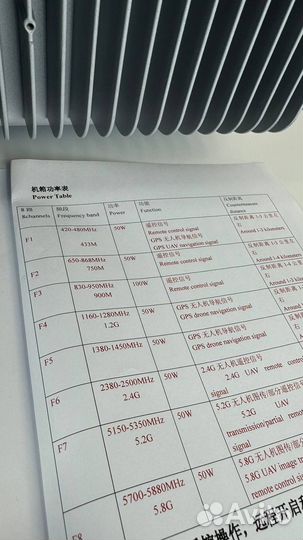 机箱功率表
Power Table
8 路 频段 功率 功能 反制距离
8channels Frequency band Power Function Countermeasure distance
F1 420-480MHz 433M 50W 遥控信号 Remote control signal
GPS 无人机导航信号
GPS UAV navigation signal
Around 1-3 kilometers
F2 650-868MHz 750M 50W 遥控信号
Remote control signal
Around 1-3
F3 830-950MHz 900M 100W 遥控信号
Remote control signal
反制距离
Around 1-3
F4 1160-1280MHz 1.2G 50W GPS 无人机导航信号
GPS drone navigation signal
反制
Around
F5 1380-1450MHz 50W GPS 无人机导航信号
GPS drone navigation signal
F6 2380-2500MHz 2.4G 50W 2.4G 无人机遥控信号
2.4G UAV remote control signal
F7 5150-5350MHz 5.2G 50W 5.2G 无人机图传/部分遥控
5.2G UAV
transmission/partial remote
signal
F8 5700-5880MHz 5.8G 50W 5.8G 无人机图传/
5.8G UAV image
remote control
操作，远程开启
Avito